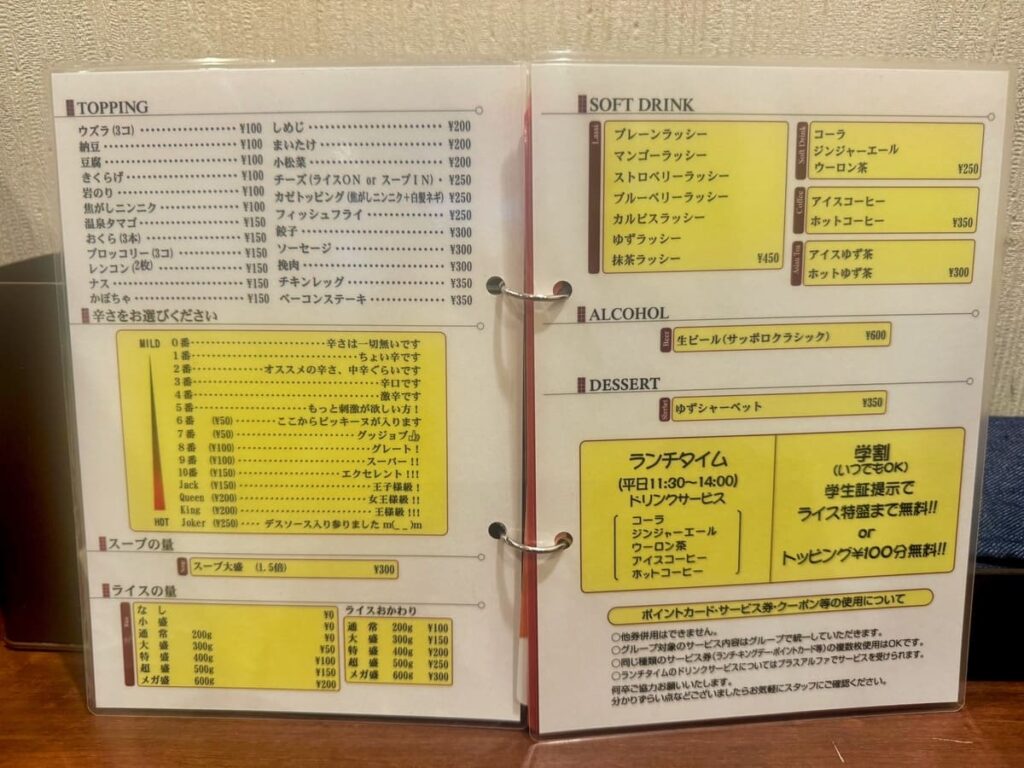 TOPPING
ウズラ(3コ) ¥100
納豆 ¥100
豆腐 ¥100
きくらげ ¥100
岩のり ¥100
焦がしニンニク ¥100
温泉タマゴ ¥150
おくら(3本) ¥150
ブロッコリー(3コ) ¥150
レンコン(2枚) ¥150
ナス ¥150
かぼちゃ ¥150
しめじ ¥200
まいたけ ¥200
小松菜 ¥200
チーズ(ライスON or スープIN) ¥250
カゼトッピング(焦がしニンニク+白髪ネギ) ¥250
フィッシュフライ ¥250
餃子 ¥300
ソーセージ ¥300
挽肉 ¥300
チキンレッグ ¥350
ベーコンステーキ ¥350
辛さをお選びください
MILD 0番 辛さは一切無いです
1番 ちょい辛です
2番 オススメの辛さ、中辛ぐらいです
3番 辛口です
4番 激辛です
5番 もっと刺激が欲しい方！
6番 (¥50) ここからピッキーヌが入ります
7番 (¥50) グッジョブ
8番 (¥100) グレート！
9番 (¥100) スーパー!!
10番 (¥150) エクセレント!!!
Jack (¥150) 王子様級！
Queen (¥200) 女王様級!!
King (¥200) 王様級!!!
HOT Joker (¥250) デスソース入り参りました m(_ _)m
スープの量
スープ大盛 (1.5倍) ¥300
ライスの量
なし ¥0
小盛 ¥0
通常 200g ¥0
大盛 300g ¥50
特盛 400g ¥100
超盛 500g ¥150
メガ盛 600g ¥200
ライスおかわり
通常 200g ¥100
大盛 300g ¥150
特盛 400g ¥200
超盛 500g ¥250
メガ盛 600g ¥300
SOFT DRINK
Lassi
プレーンラッシー
マンゴーラッシー
ストロベリーラッシー
ブルーベリーラッシー
カルピスラッシー
ゆずラッシー
抹茶ラッシー ¥450
Soft Drink
コーラ
ジンジャーエール
ウーロン茶 ¥250
Coffee
アイスコーヒー
ホットコーヒー ¥350
アイスゆず茶
ホットゆず茶 ¥300
ALCOHOL
Beer
生ビール(サッポロクラシック) ¥600
DESSERT
Sherbet
ゆずシャーベット ¥350
ランチタイム
(平日11:30〜14:00)
ドリンクサービス
コーラ
ジンジャーエール
ウーロン茶
アイスコーヒー
ホットコーヒー
学割
(いつでもOK)
学生証提示で
ライス特盛まで無料!!
or
トッピング¥100分無料!!
ポイントカード・サービス券・クーポン等の使用について
○他券併用はできません。
○グループ対象のサービス内容はグループで統一していただきます。
○同じ種類のサービス券(ランチキングデー・ポイントカード等)の複数枚使用はOKです。
○ランチタイムのドリンクサービスについてはプラスアルファでサービスを受けられます。
何卒ご協力お願いいたします。
分かりずらい点などございましたらお気軽にスタッフにご確認ください。